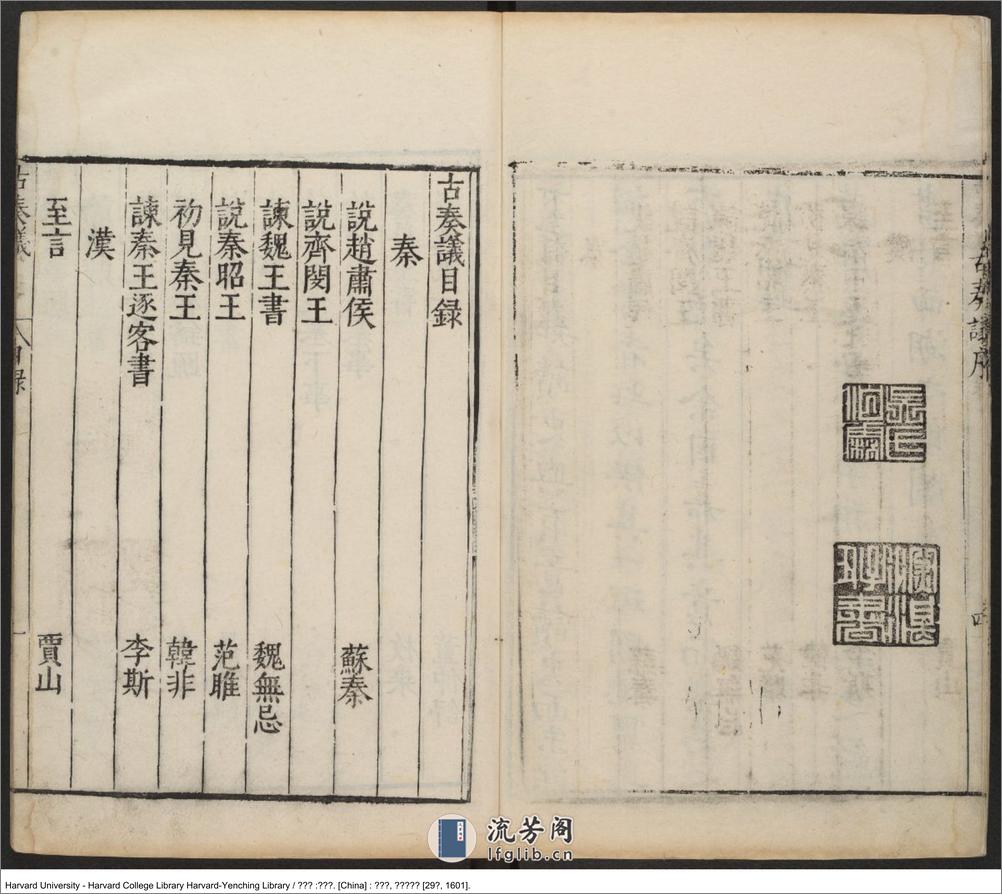 古奏議序
四
古奏議目録
秦
說趙肅侯 蘇秦
說齊閔王
諫魏王書 魏無忌
說秦昭王 范雎
初見秦王 韓非
諫秦王逐客書 李斯
漢
至言 賈山
古奏議 目録 一
流芳阁
lfglib.cn
Harvard University - Harvard College Library Harvard-Yenching Library / ??? :???. [China] : ???, ????? [29?, 1601].